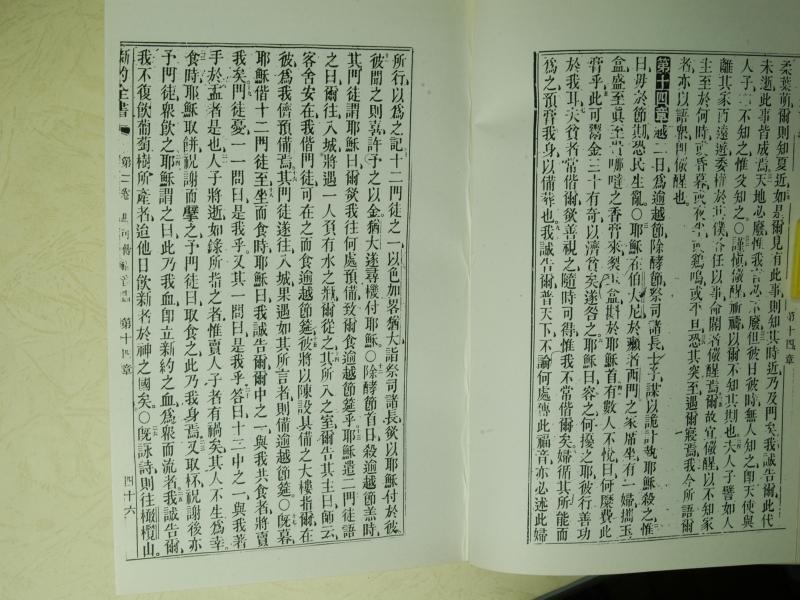 柔葉萌爾則知夏近如是爾見有此事則知其時近乃及門矣我誠告爾此代
未逝此事皆成焉天地必廢惟我言必不廢但彼日彼時無人知之卽天使與
人子亦不知之惟父知之○謹愼儆醒祈禱以爾不知其期也夫人子譬如人
離其家而遠遊委權於其僕各任以事命閽者儆醒焉爾故宜儆醒以不知家
主至於何時或昏暮或夜半或鷄鳴或平旦恐其突至遇爾寢焉我今所語爾
者亦以語衆卽儆醒也
第十四章越二日爲逾越節除酵節祭司諸長士子謀以詭計執耶穌殺之惟
曰毋於節期恐民生亂○耶穌在伯大尼於癩者西門之家席坐有一婦攜玉
盒盛至眞至貴哪噠之香膏來裂玉盒斟於耶穌首有數人不悅曰何糜費此
膏乎此可鬻金三十有奇以濟貧矣遂咎之耶穌曰容之何擾之耶彼行善功
於我耳夫貧者常偕爾欲善視之隨時可得惟我不常偕爾矣婦循其所能而
爲之預膏我身以備葬也我誠告爾普天下不論何處傳此福音亦必述此婦
第十四章
所行以爲之記十二門徒之一以色加畧猶大詣祭司諸長欲以耶穌付於彼
彼聞之則喜許予之以金猶大遂尋機付耶穌○除酵節首日殺逾越節羔時
其門徒謂耶穌曰爾欲我往何處預備致爾食逾越節筵乎耶穌遣二門徒語
之曰爾往入城將遇一人負有水之瓶爾從之其所入之室爾告其主曰師云
客舍安在我偕門徒可在之而食逾越節筵彼將以陳設具備之大樓指爾在
彼爲我儕預備焉其門徒遂往入城果遇如其所言者則備逾越節筵○旣暮
耶穌偕十二門徒至坐而食時耶穌曰我誠告爾爾中之一與我共食者將賣
我矣門徒憂一一問曰是我乎又其一問曰是我乎答曰十二中之一與我著
手於盂者是也人子將逝如錄所指之者惟賣人子者有禍矣其人不生爲幸
食時耶穌取餠祝謝而擘之予門徒曰取食之此乃我身焉又取杯祝謝後亦
予門徒衆飮之耶穌謂之曰此乃我血卽立新約之血爲衆而流者我誠告爾
我不復飮葡萄樹所產者迨他日飮新者於神之國矣○旣詠詩則往橄欖山
新約全書 第二卷 第十四章 四十六